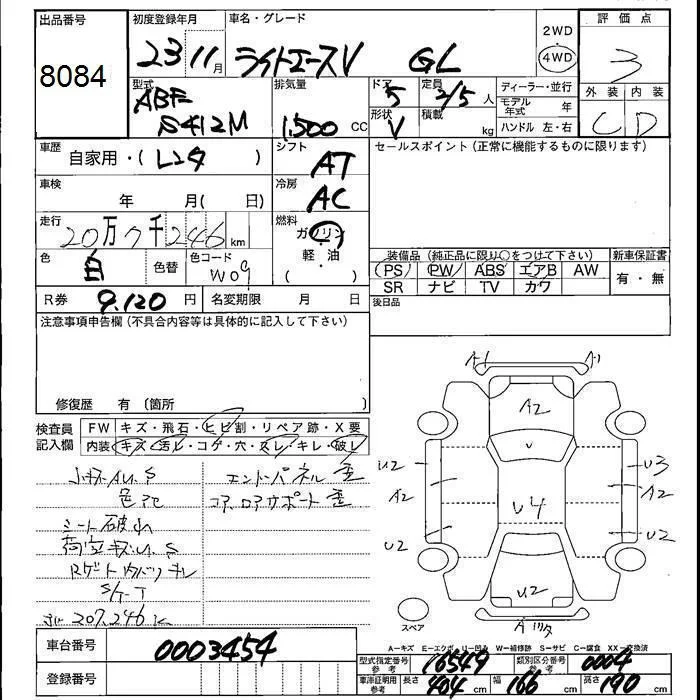 出品番号
8084
初度登録年月
23 11 月
車名・グレード
ライトエースV GL
2WD
4WD
評価点
3
外装 内装
C D
型式
ABF
S412M
排気量
1500 cc
ドア
5
形状
V
定員
2/5 人
積載
kg
ディーラー・並行
モデル年式 年
ハンドル 左・右
車歴
自家用・( レンタ )
シフト
AT
セールスポイント(正常に機能するものに限ります)
車検
年 月( 日)
冷房
AC
走行
20万7千246 km
燃料
ガソリン
軽・油
色
白
色替
色コード
W09
装備品(純正品に限り○をつけて下さい)
PS PW ABS エアB AW
SR ナビ TV カワ
新車保証書
有・無
後日品
R券 9.120 円
名変期限 月 日
注意事項申告欄(不具合内容等は具体的に記入して下さい)
修復歴 有 (箇所 )
検査員記入欄
FW キズ・飛石・ヒビ割・リペア跡・X要
内装 キズ・汚レ・コゲ・穴・スレ・キレ・破レ
小キズ A.U.S
色アセ
シート破れ
荷室キズ.U.S
Rゲート内バリ キレ
S/T
207,246k
エンドパネル歪
コア、ロアサポート歪
A1 A1
A2
V
U2 U3
A2 A2
U4
U2 U2
U2
A
スペア
A-キズ E-エクボ U-凹み W-補修跡 S-サビ C-腐食 XX-交換済
車台番号
0003454
登録番号
型式指定番号参考
16549
類別区分番号参考
0004
車庫証明用参考
長さ 404 cm 幅 166 cm 高さ 190 cm